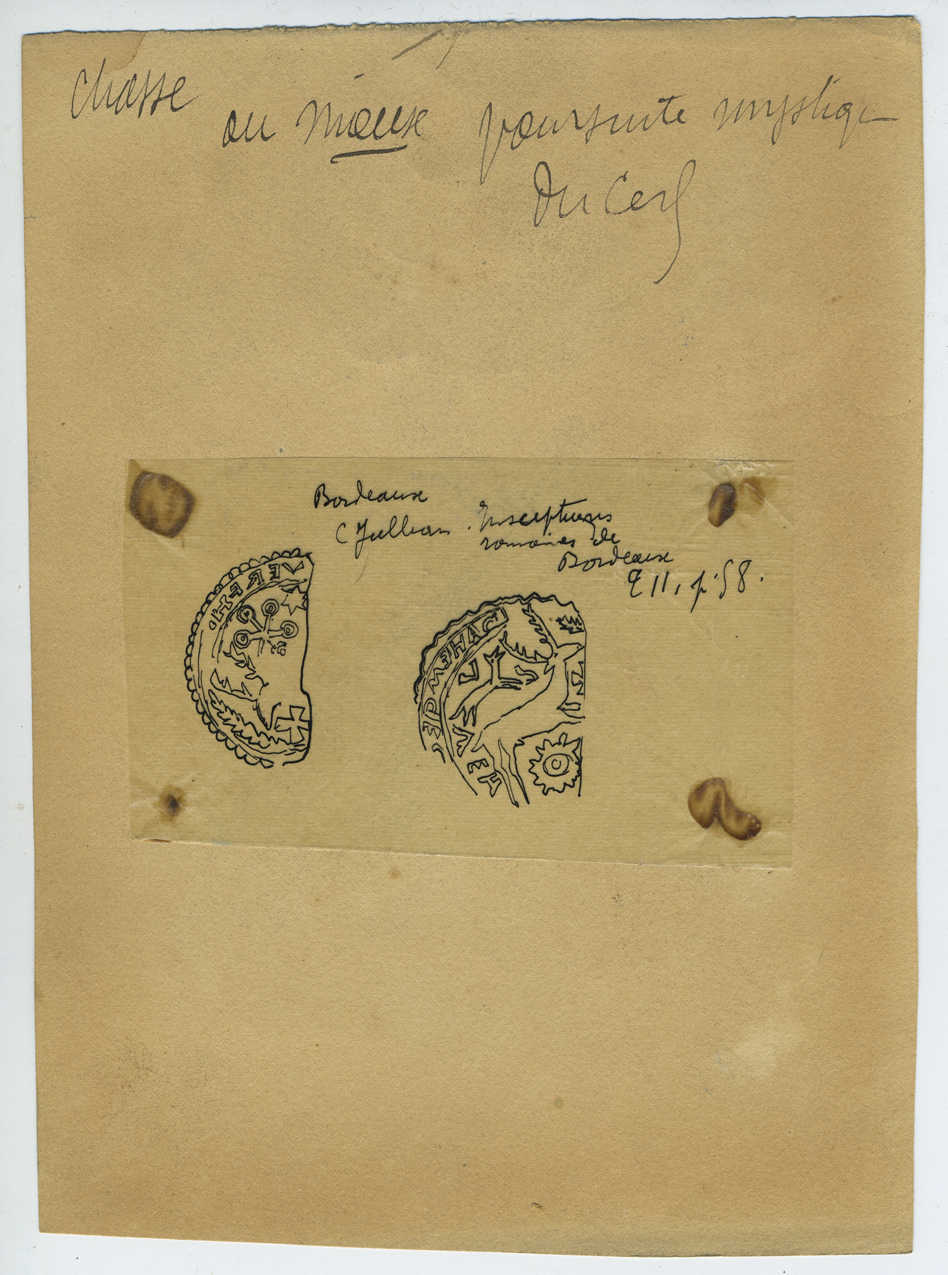 Chasse
ou mieux poursuite mystique
Du Cerf
Bordeaux
C Jullian. Inscriptions
romaines de
Bordeaux
T II, p. 58.